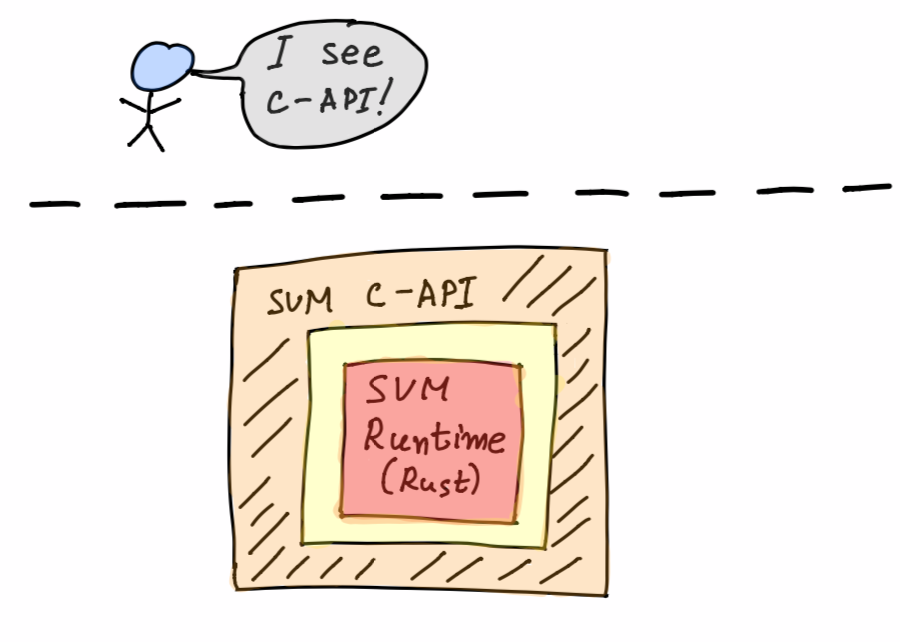 I see
C-API!
SVM C-API
SVM
Runtime
(Rust)